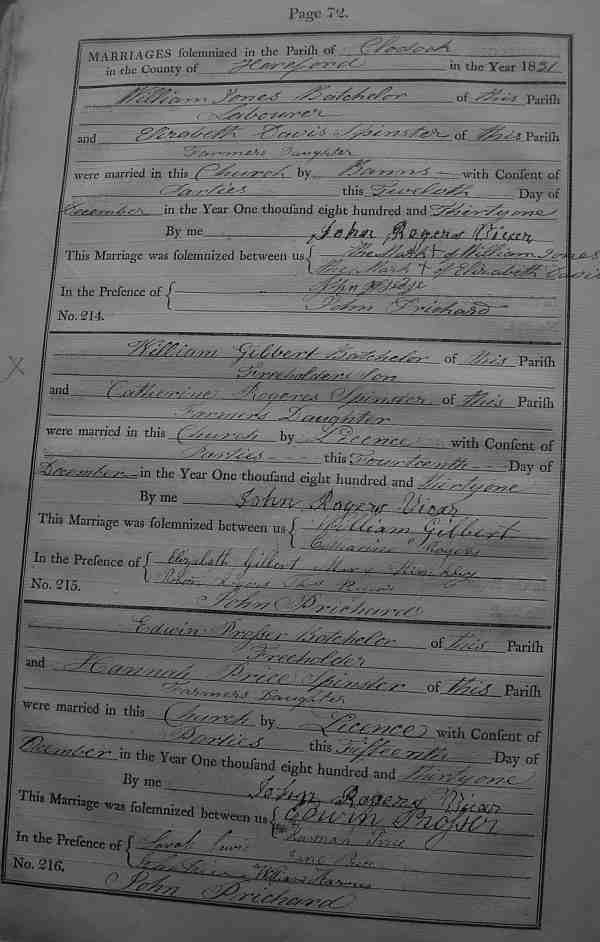 Page 72.
MARRIAGES solemnized in the Parish of Clodock
in the County of Hereford in the Year 1831
William Jones Batchelor of this Parish
Labourer
and Elizabeth Davis Spinster of this Parish
Farmers Daughter
were married in this Church by Banns with Consent of
Parties this Twelvth Day of
December in the Year One thousand eight hundred and Thirtyone
By me John Rogers Vicar
This Marriage was solemnized between us { The Mark + of William Jones
The Mark + of Elizabeth Davis
In the Presence of { John
John Prichard
No. 214.
X
William Gilbert Batchelor of this Parish
Freeholders Son
and Catherine Rogers Spinster of this Parish
Farmers Daughter
were married in this Church by Licence with Consent of
Parties this Fourteenth Day of
December in the Year One thousand eight hundred and thirtyone
By me John Rogers Vicar
This Marriage was solemnized between us { William Gilbert
Catharine Rogers
In the Presence of { Elizabeth Gilbert Mary
No. 215.
John Prichard
Edwin Prosser Batchelor of this Parish
Freeholder
and Hannah Price Spinster of this Parish
Farmers Daughter
were married in this Church by Licence with Consent of
Parties this Fifteenth Day of
December in the Year One thousand eight hundred and thirtyone
By me John Rogers Vicar
This Marriage was solemnized between us { Edwin Prosser
Price
In the Presence of { Sarah Lewis
William
No. 216.
John Prichard